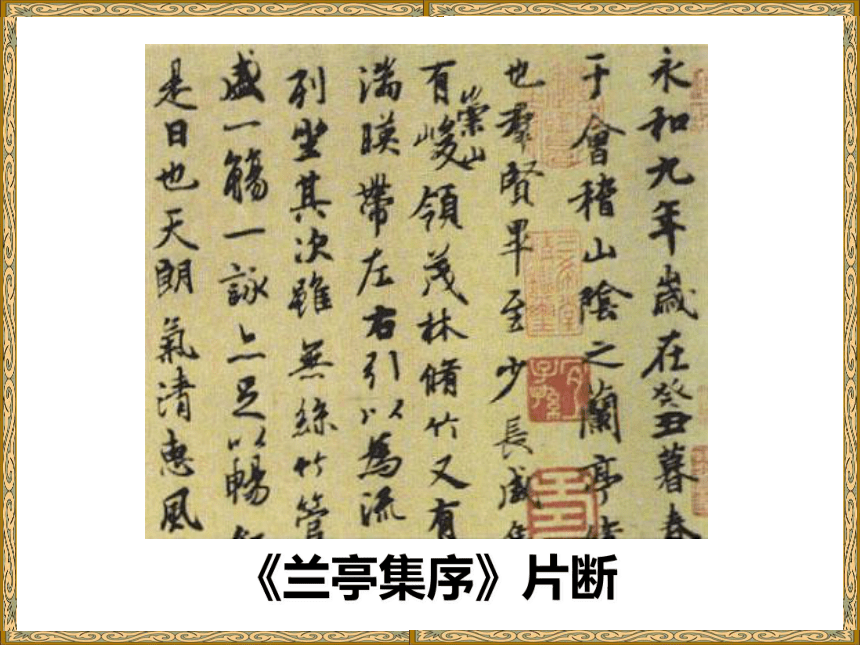 永和九年歲在癸丑暮春
于會稽山陰之蘭亭
也羣賢畢至少長咸集
有崇山峻領茂林脩竹又有
湍暎帶左右引以為流
列坐其次雖無絲竹管
盛一觴一詠亦足以暢
是日也天朗氣清惠風
《兰亭集序》片断